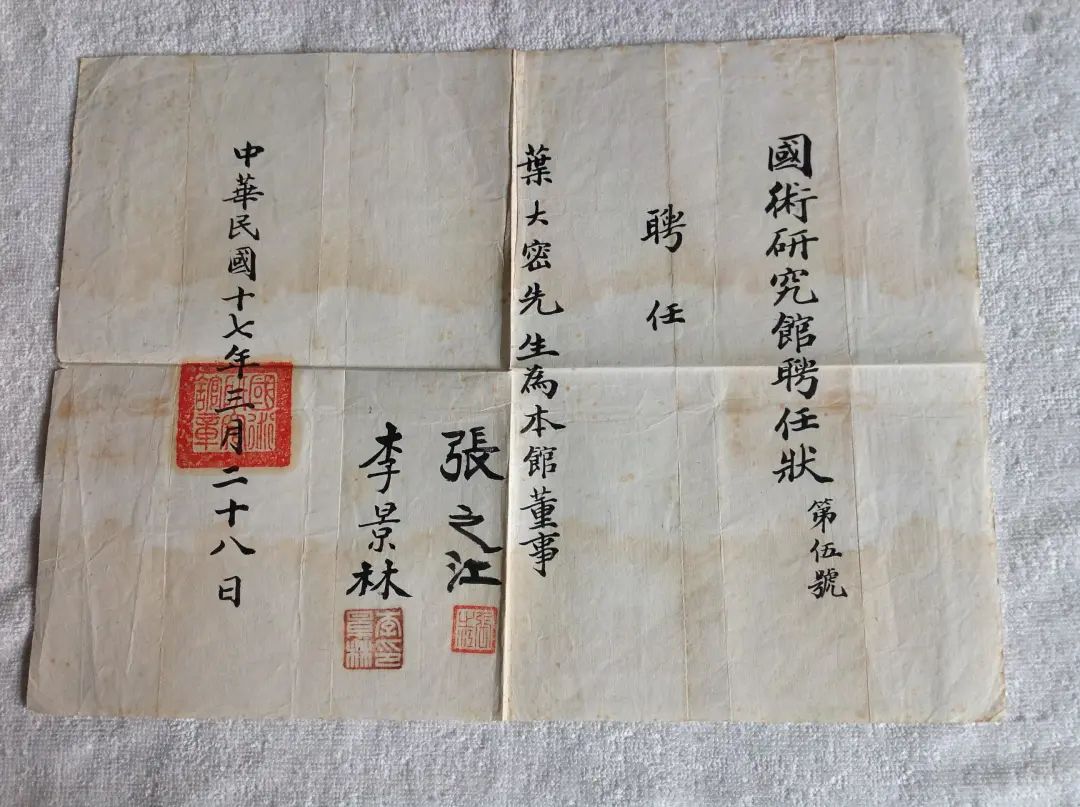 國術研究館聘任狀
第伍號
聘任
葉大密先生為本館董事
張之江
李景林
中華民國十七年三月二十八日